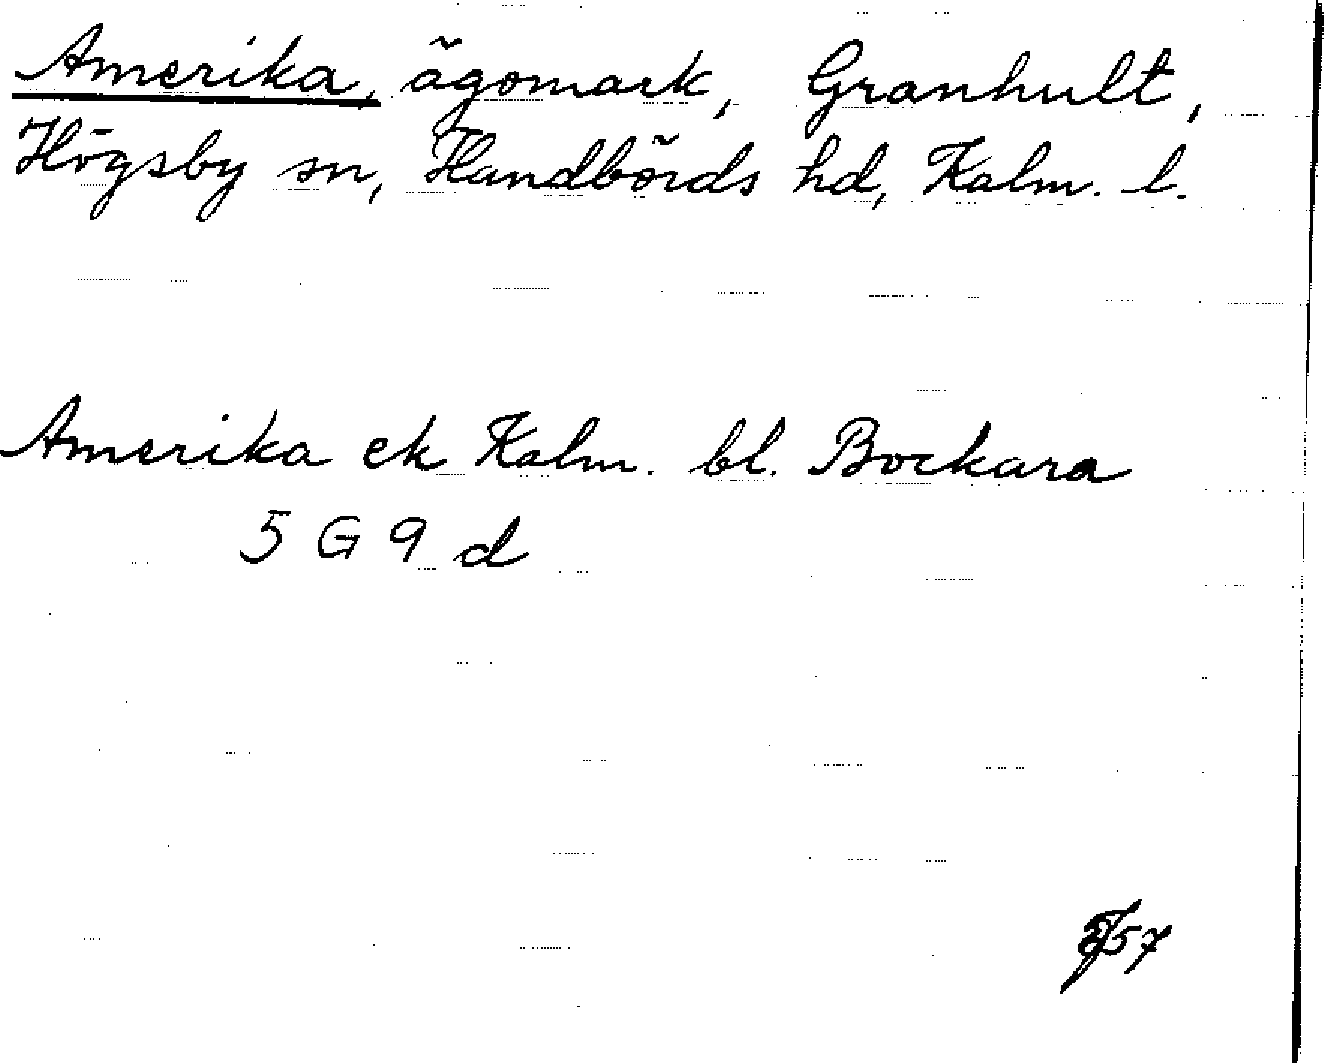 Amerika, ägomark, Granhult,
Högsby sn, Handbörds hd, Kalm. l.
Amerika ek Kalm. bl. Bockara
5 G 9 d
57